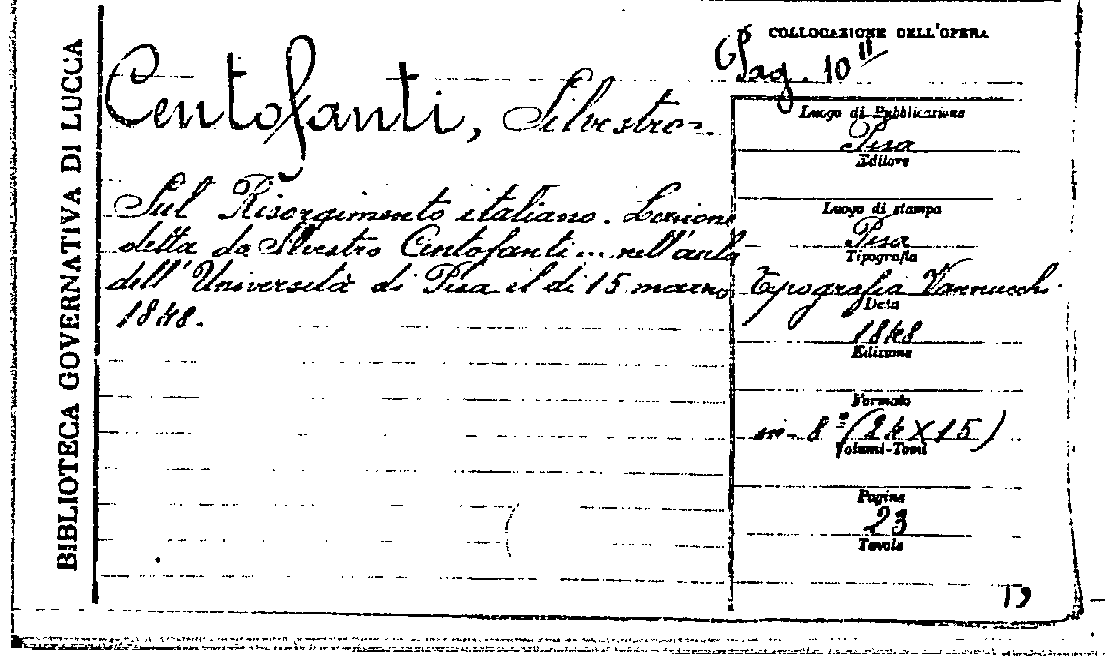 BIBLIOTECA GOVERNATIVA DI LUCCA
COLLOCAZIONE DELL'OPERA
Pag. 10 II
Centofanti, Silvestro
Sul Risorgimento italiano. Lezione
detta da Silvestro Centofanti... nell'aula
dell'Università di Pisa il dì 15 marzo
1848.
Luogo di Pubblicazione
Pisa
Editore
Luogo di stampa
Pisa
Tipografia
Tipografia Vannucchi.
Data
1848
Edizione
Formato
in-8º (24X15)
Volumi-Tomi
Pagine
23
Tavole